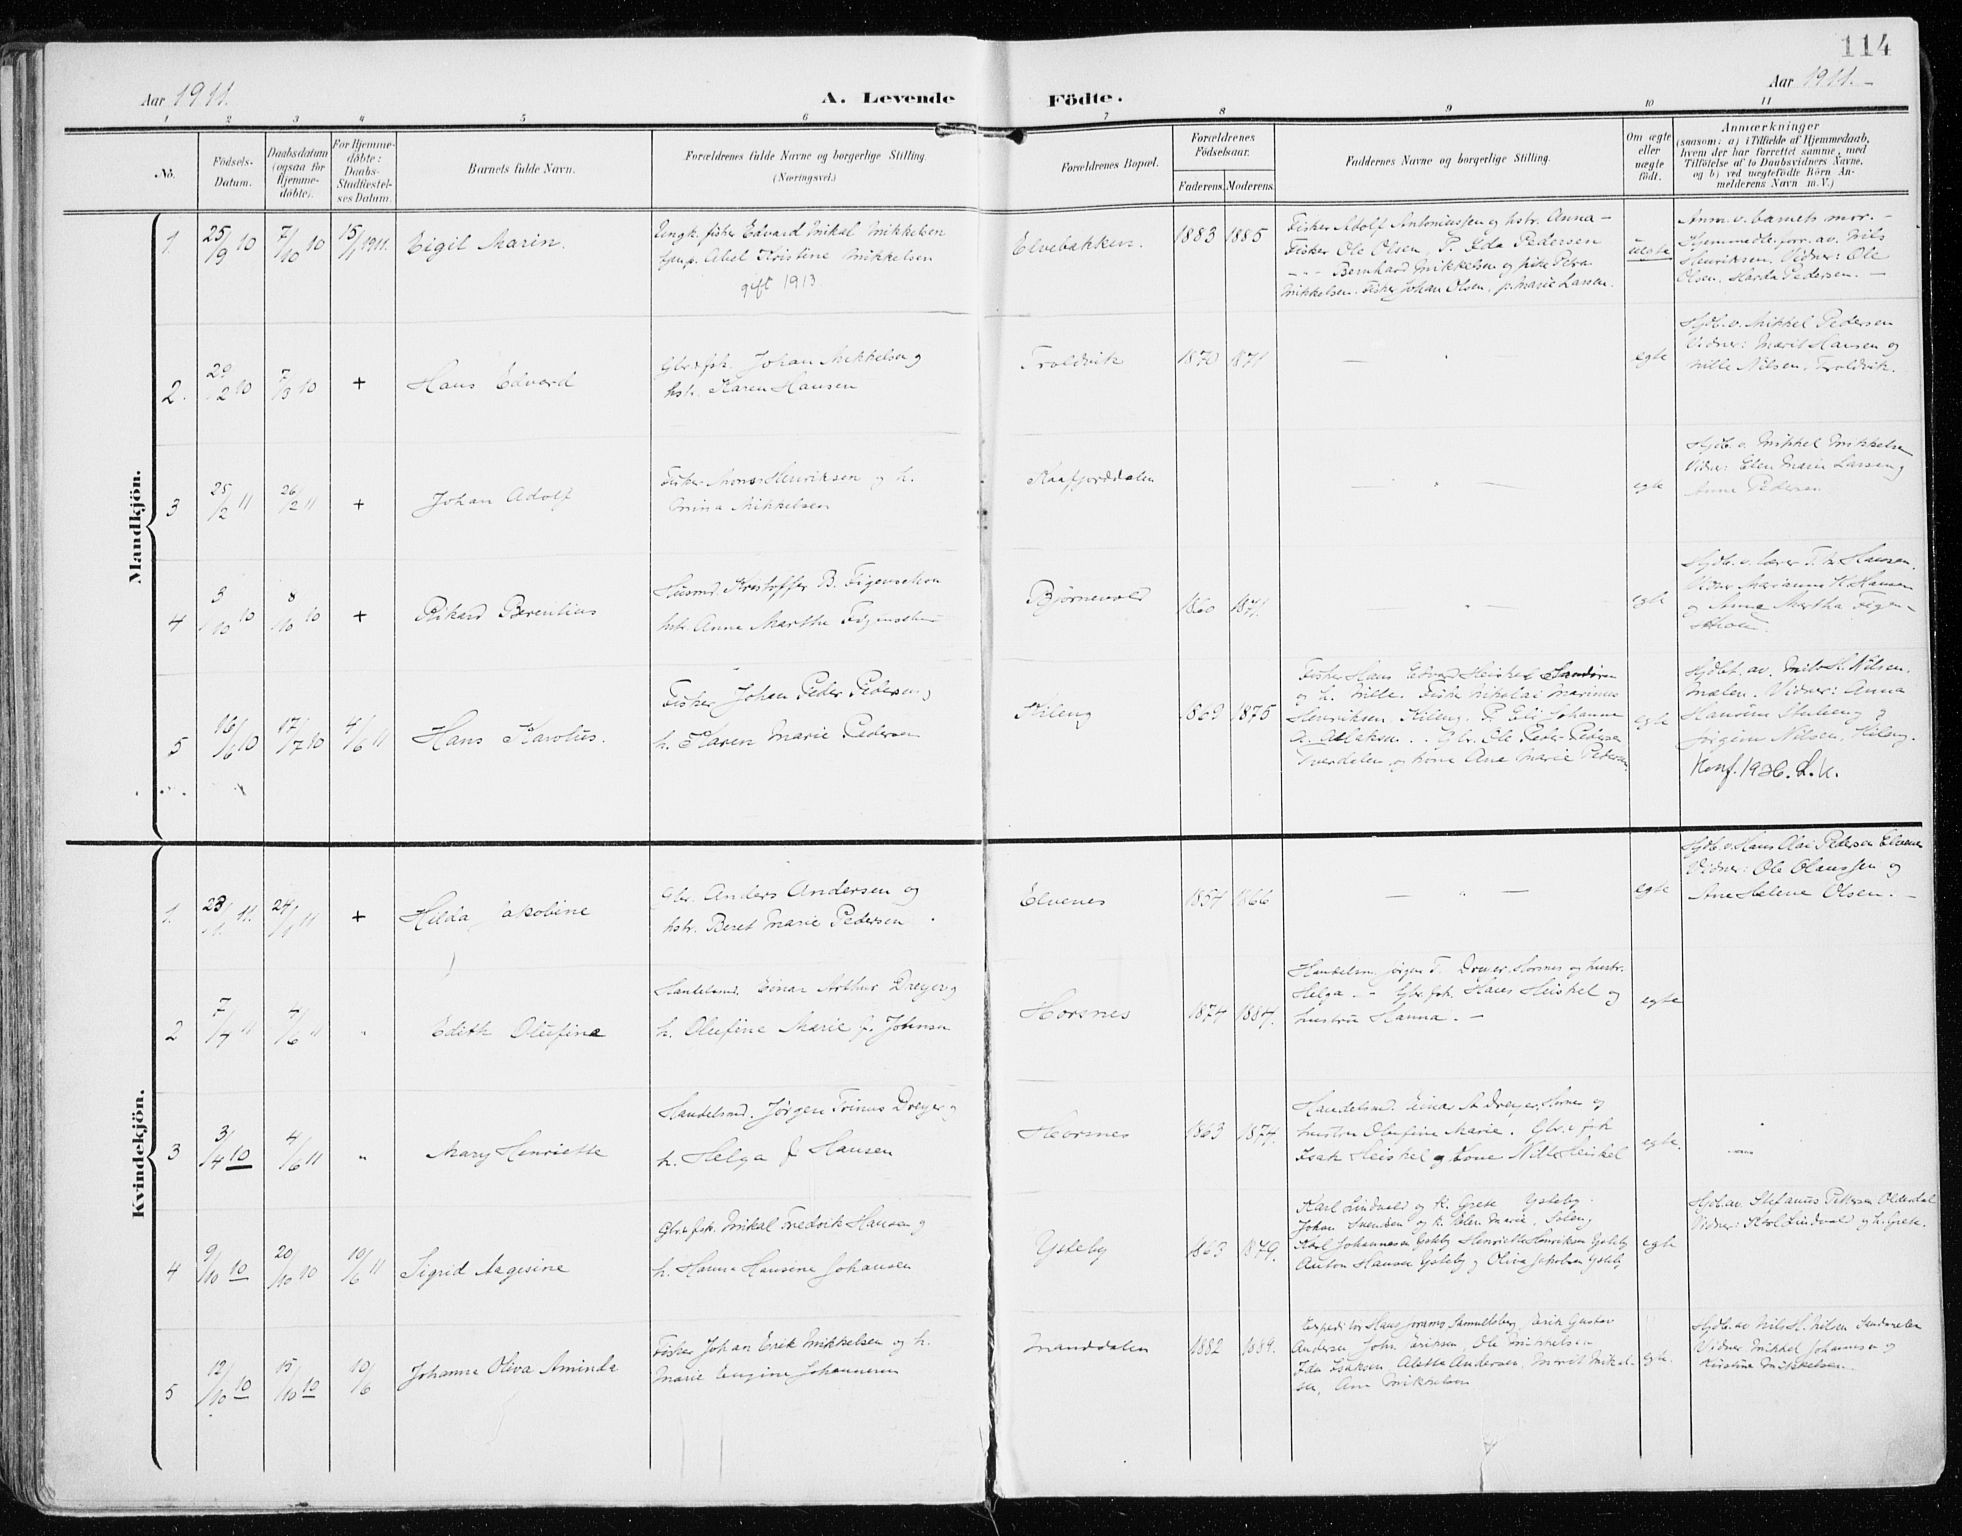 114
Aar 1911.
A. Levende Födte.
Aar 1911. –
1 2 3 4 5 6 7 8 9 10 11
No.
Födsels-Datum.
Daabsdatum (ogsaa for Hjemme-döbte).
For Hjemme-döbte: Daabs-Stadfæstel-ses Datum.
Barnets fulde Navn.
Forældrenes fulde Navne og borgerlige Stilling. (Næringsvei.)
Forældrenes Bopæl.
Forældrenes Födselsaar.
Faderens. Moderens.
Faddernes Navne og borgerlige Stilling.
Om ægte eller uægte födt.
Anmærkninger
(saasom: a) i Tilfælde af Hjemmedaab, hvem der har forrettet samme, med Tilföielse af to Daabsvidners Navne, og b) ved uægtefödte Börn An-melderens Navn m. V.)
Mandkjön.
1. 25/9 10 7/10 10 15/1 1911. Eigil Marin.
Ungk. fisker Edvard Mikal Mikkelsen
Abel Kristine Mikkelsen
gift 1913
Elvebakken. 1883 1885
Fisker Adolf Antoniussen og hstr. Anna –
Fisker Ole Olsen, P. Ida Pedersen
– " – Bernhard Mikkelsen og pike Petra
Mikkelsen. Fisker Johan Olsen, p. Marie Larsen.
uegte
Anm. v. barnets mor. –
Hjemmedb. forr. av Nils
Henriksen. Vidner: Ole
Olsen, Harda Pedersen. –
2. 10 7/3 10 + Hans Edvard
Gbr. fsk. Johan Mikkelsen og
hstr. Karen Hansen
Troldvik 1870 1871 — " — egte
Hjdb. v. Mikkel Pedersen
Vidner: Marit Hansen og
Nille Nilsen, Troldvik.
3 25/2 11 26/2 11 + Johan Adolf
Fisker Mons Henriksen og h.
Mina Mikkelsen
Kaafjorddalen — " — egte
Hjdb. v. Mikkel Mikkelsen
Vidner: Elen Marie Larsen og
Anne Pedersen
4 3/10 10 8/10 10 + Rikard Berentius
Husmd. Kristoffer B. Figenschou
hstr. Anne Marthe Figenschou
Bjørnevold 1860 1871. — " — egte
Hjdb. v. lærer T. M. Hansen.
Vidner Marianne H. Hansen
og Anne Martha Figen-
schou.
5 16/6 10 17/7 10 4/6 11 Hans Karolus.
Fisker Johan Peder Pedersen og
h. Karen Marie Pedersen
Kileng 1869 1875
Fisker Hans Edvard Heiskel Sandøren
og h. Nille. Fisk. Nikolai Marinus
Henriksen, Kileng. P. Eli Johanne
A. Aslaksen. Gbr. Ole Peder Pedersen
Tverdalen og kone Ane Marie Pedersen.
egte
Hjdbt. av. Nils H. Nilsen.
Mælen. Vidner: Anna
Hansine Stenberg og
Jørgine Nilsen, Kileng.
Konf. 1926. L.K.
Kvindekjön.
1. 23/1 11. 24/1 11 + Hilda Jakobine
Gbr. Anders Andersen og
hstr. Beret Marie Pedersen.
Elvenes 1854 1866 — " — egte
Hjdb. v. Hans Olai Pedersen Elvenes
Vidner: Ole Olaussen og
Ane Helene Olsen. –
2 7/4 " 4/6 " " Edith Olufine
Handelsmd. Einar Arthur Dreyer og
h. Olufine Marie f. Johnsen
Horsnes 1874 1884.
Handelsm. Jørgen T. Dreyer, Horsnes og hustr.
Helga – " Gbr. fsk. Hans Heiskel og
hustru Hanna. –
egte
3 3/4 10 4/6 11 " Mary Henriette
Handelsmd. Jørgen Trinus Dreyer og
h. Helga f. Hansen
Horsnes 1863 1874.
Handelsmd. Einar A. Dreyer, Horsnes og
hustru Olufine Marie. Gbr. & fsk
Isak Heiskel og kone Nille Heiskel
egte.
4 9/10 10 20/10 10 10/6 11 Sigrid Aagesine
Gbr. fsk. Mikal Fredrik Hansen og
h. Hanna Hansine Johansen
Ysteby 1863 1879.
Karl Lindvald og h. Grete Ysteby.
Johan Svendsen og h. Elen Marie,
Karl Johannesen Ysteby Henriette Henriksen Ysteby
Anton Hansen Ysteby og Oliva Jakobsen Ysteby
egte
Hjdb. av Stefanus Pettersen Olderdal
Vidner: Lindvald og h. Grete.
5 12/10 10 15/10 10 10/6 Johanne Oliva Aminda
Fisker Johan Erik Mikkelsen og h.
Marie Eugine Johannesen
Manddalen 1882 1889.
Expeditør Hans Samuelsberg, Erik Gustav
Andersen John Eriksen Ole Mikkelsen
Ida Isaksen, Aletta Andersen, Marit Mikal-
sen, Ane Mikkelsen
egte.
Hjdb. av Nils H. Nilsen
Vidner Mikkel Johannesen og
Kristine Mikkelsen.